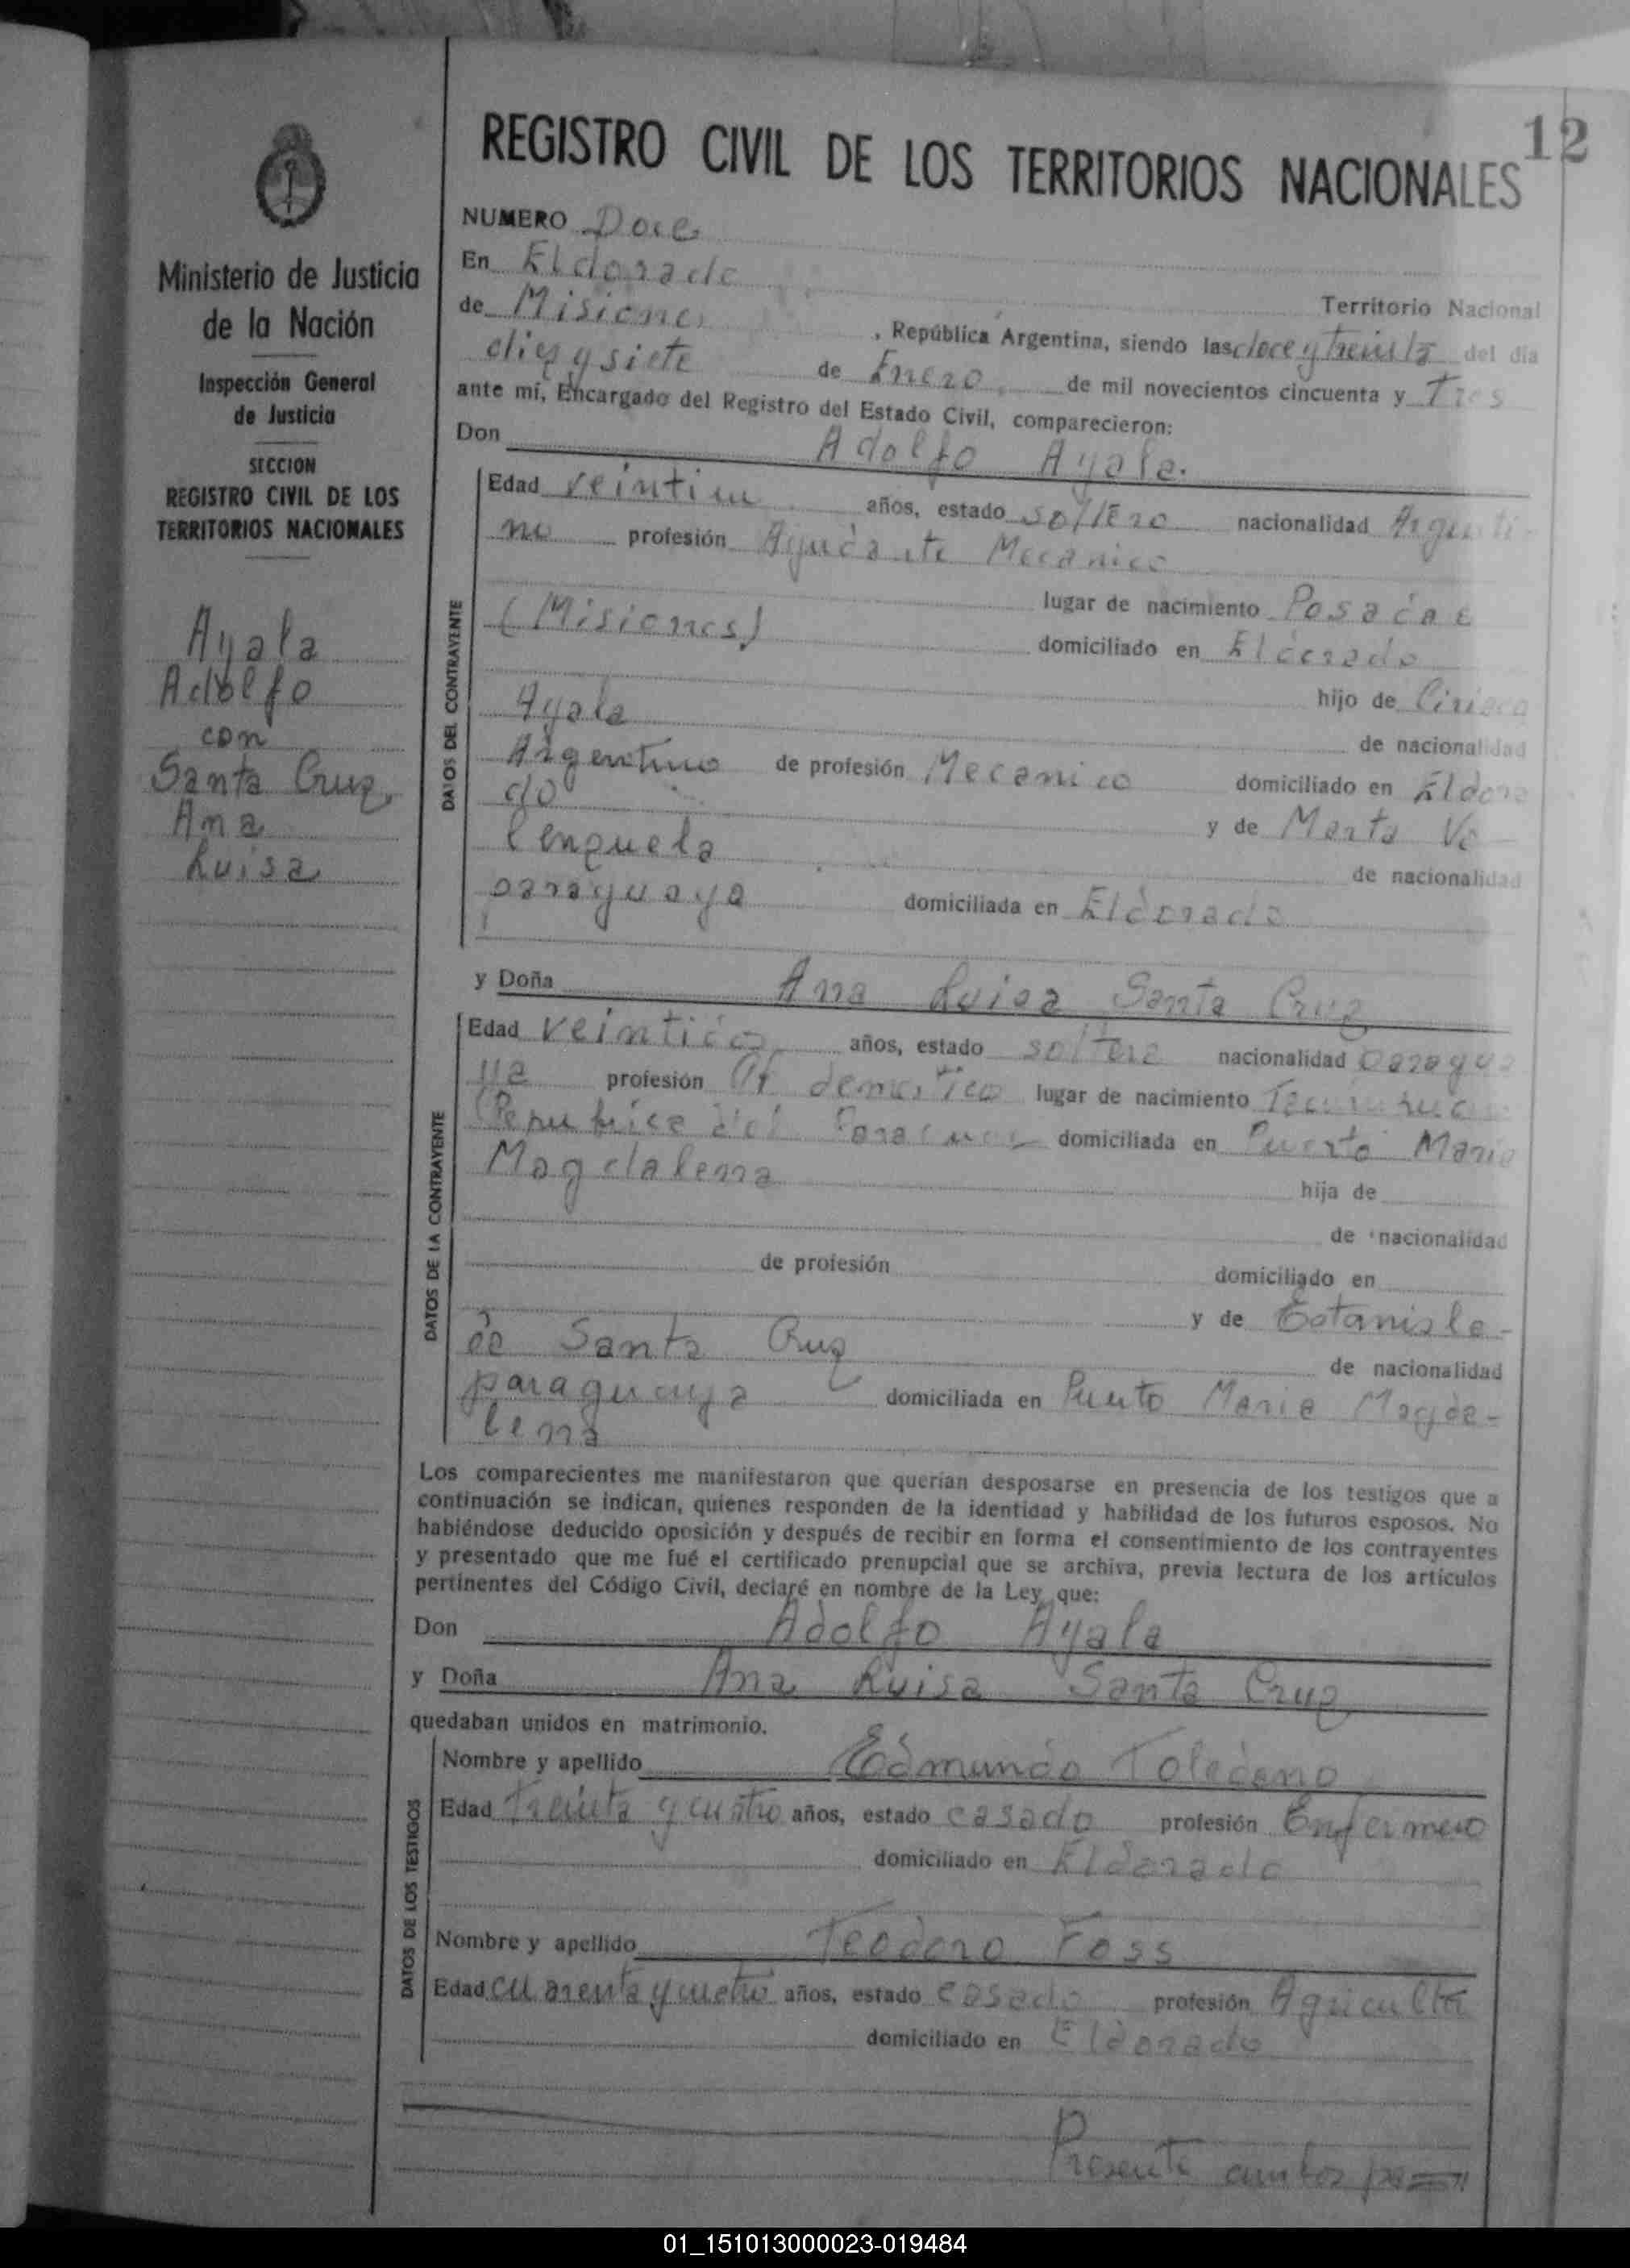 12
REGISTRO CIVIL DE LOS TERRITORIOS NACIONALES
Ministerio de Justicia
de la Nación
Inspección General
de Justicia
SECCION
REGISTRO CIVIL DE LOS
TERRITORIOS NACIONALES
Ayala
Adolfo
con
Santa Cruz,
Ana
Luisa
NUMERO Doce
En Eldorado Territorio Nacional
de Misiones, República Argentina, siendo las doce y treinta del día
diez y siete de Enero, de mil novecientos cincuenta y Tres
ante mí, Encargado del Registro del Estado Civil, comparecieron:
Don Adolfo Ayala.
DATOS DEL CONTRAYENTE
Edad veintiun años, estado soltero nacionalidad Argenti-
no profesión Ayudante Mecanico
lugar de nacimiento Posadas
(Misiones) domiciliado en Eldorado
hijo de
Ayala de nacionalidad
Argentino de profesión Mecanico domiciliado en Eldora
do y de Marta Ve-
lenzuela de nacionalidad
paraguaya domiciliada en Eldorado
y Doña Ana Luisa Santa Cruz
DATOS DE LA CONTRAYENTE
Edad años, estado soltera nacionalidad paragua
ya profesión domestico lugar de nacimiento
domiciliada en Puerto Maria
Magdalena hija de
de nacionalidad
de profesión domiciliado en
y de Estanisla-
Santa Cruz de nacionalidad
paraguaya domiciliada en Puerto Maria Magda-
lena
Los comparecientes me manifestaron que querían desposarse en presencia de los testigos que a
continuación se indican, quienes responden de la identidad y habilidad de los futuros esposos. No
habiéndose deducido oposición y después de recibir en forma el consentimiento de los contrayentes
y presentado que me fué el certificado prenupcial que se archiva, previa lectura de los artículos
pertinentes del Código Civil, declaré en nombre de la Ley que:
Don Adolfo Ayala
y Doña Ana Luisa Santa Cruz
quedaban unidos en matrimonio.
DATOS DE LOS TESTIGOS
Nombre y apellido Edmundo Toledano
Edad Treinta y cuatro años, estado casado profesión Enfermero
domiciliado en Eldorado
Nombre y apellido Teodoro Foss
Edad cuarenta y cuatro años, estado casado profesión Agriculto
domiciliado en Eldorado
Presente ambos
01_151013000023-019484